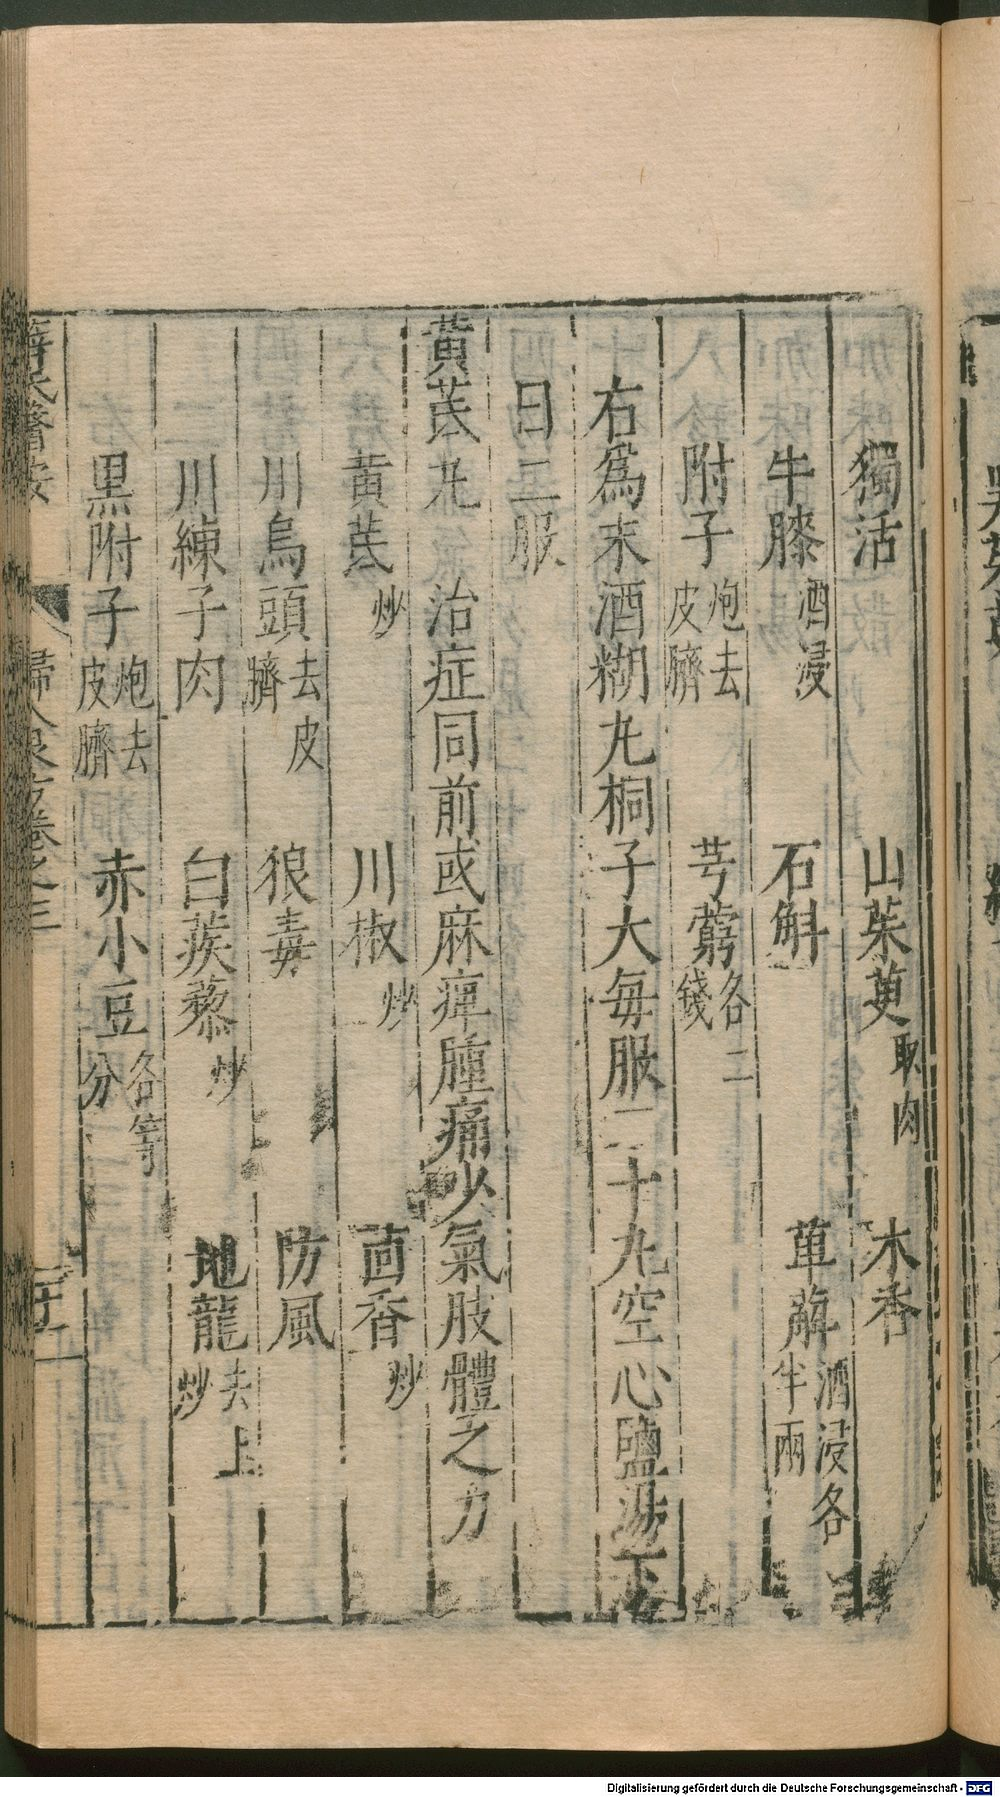 獨活 山茱萸取肉 木香
牛膝酒浸 石斛 萆薢酒浸各半兩
附子炮去皮臍 芎藭各二錢
右爲末酒糊九桐子大每服二十九空心鹽湯下
日三服
黃茋九 治症同前或麻痺腫痛少氣肢體之力
黃茋炒 川椒炒 茴香炒
川烏頭去皮臍 狼毒 防風
川練子肉 白蒺藜炒 地龍去土炒
黒附子炮去皮臍 赤小豆各等分
薛氏醫按 婦人良方卷之三
Digitalisierung gefördert durch die Deutsche Forschungsgemeinschaft - DFG